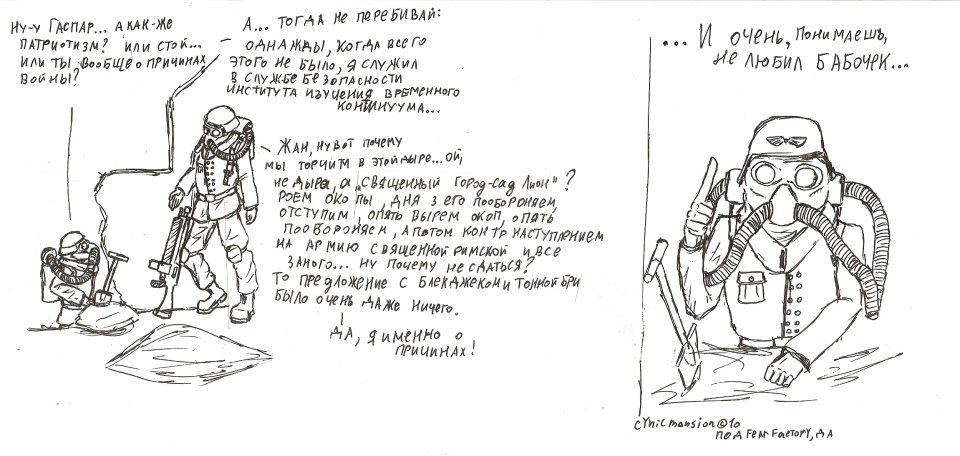 Ну-у Гаспар... а как-же
патриотизм? или стой...
или ты, вообще о причинах
войны?
А... тогда не перебивай:
однажды, когда всего
этого не было, я служил
в службе безопасности
института изучения временного
континуума...
Жан, ну вот почему
мы торчим в этой дыре... ой,
не дыра, а „священный город-сад Лион"?
Роем окопы, дня 3 его пообороняем,
отступим, опять вырем окоп, опять
пообороняем, а потом контрнаступлением
на армию священной римской и все
заного... ну почему не сдаться?
То предложение с блекджеком и тонной бри
было очень даже ничего.
Да, я именно о
причинах!
...И очень, понимаешь,
не любил бабочек...
cynicmansion©10
под Fear Factory, да